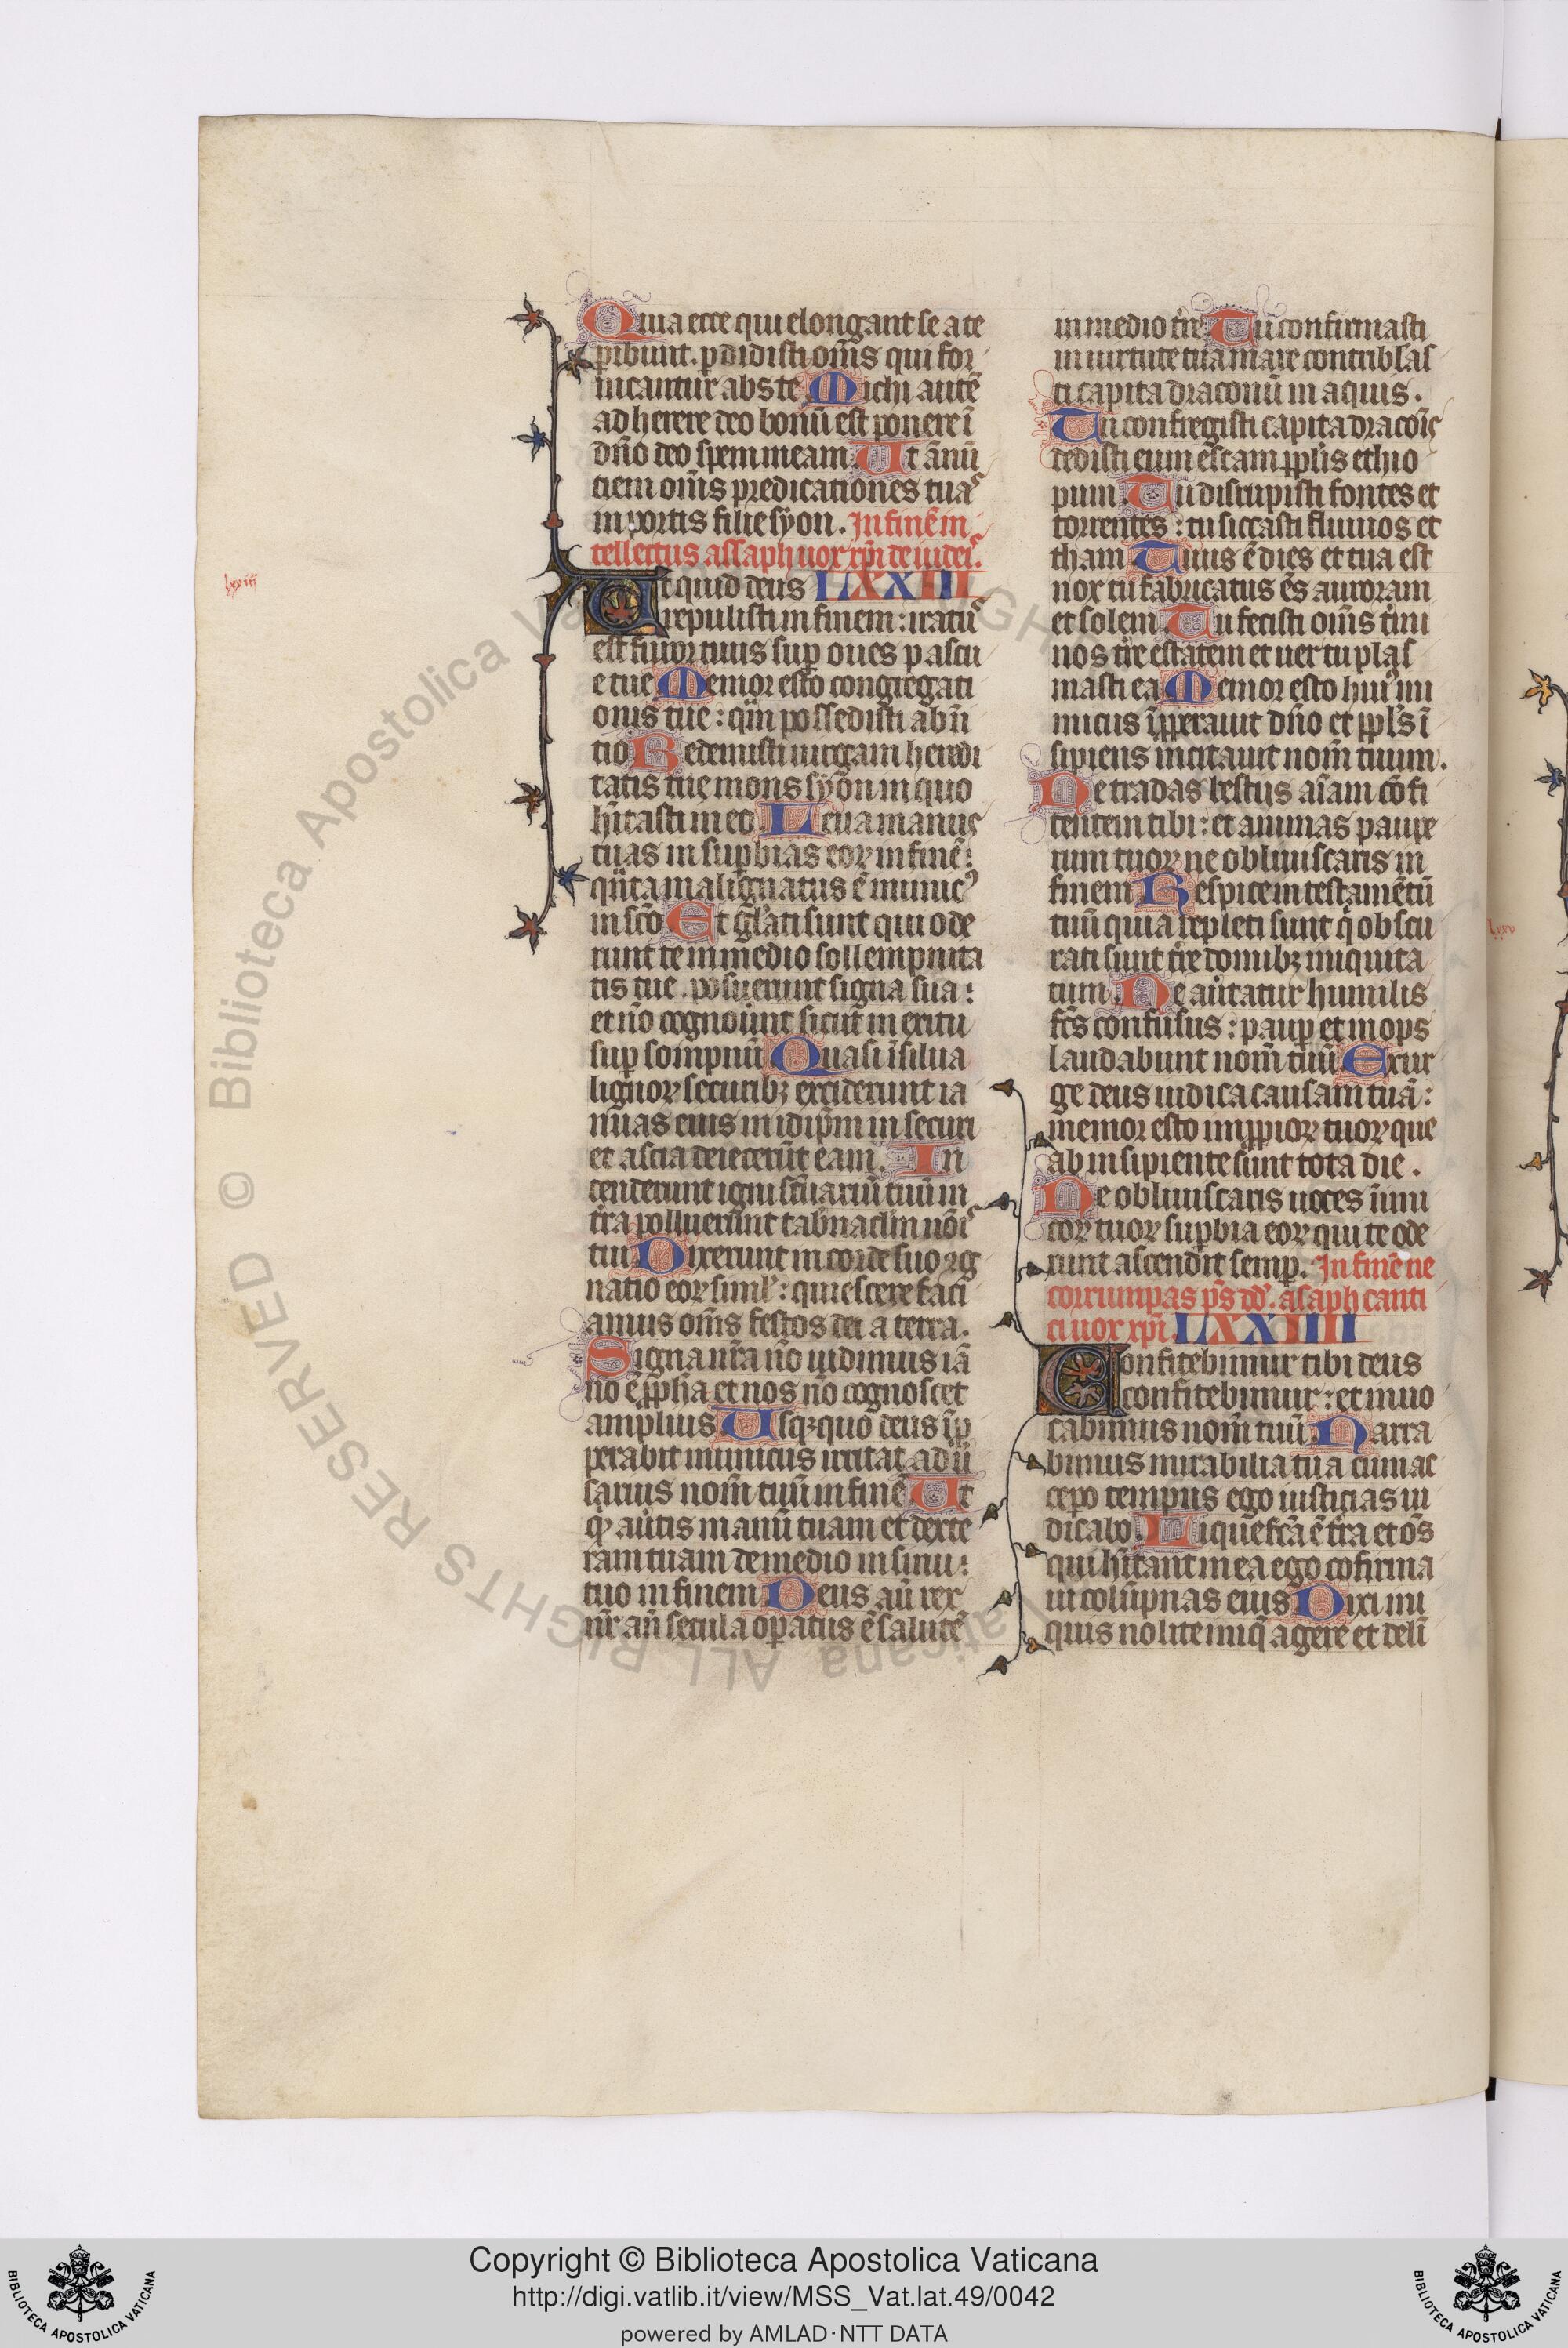 Quia ecce qui elongant se a te
ꝑibunt. ꝑdidisti om̄s qui for
nicantur abs te Michi autē
adherere deo bonū est ponere ī
dn̄o deo spem meam Ut ānū
ciem om̄s predicationes tuas
in portis filie syon. In finē in
tellectus assaph uox xp̄i de iudeis.
Ut quid deus LXXIII
repulisti in finem: iratus
est furor tuus suꝑ oues pascu
e tue Memor esto congregati
onis tue: qm̄ possedisti ab ni
tio Redemisti uirgam heredi
tatis tue mons syon in quo
hītasti in eo. Leua manus
tuas in suꝑbias eoꝝ in finē:
q̄nta malignatus ē inimicꝰ
in sc̄o Et gl̄ati sunt qui ode
runt te in medio sollempnita
tis tue. posuerunt signa sua:
et nō cognoūunt sicut in exitu
suꝑ sompnū Quasi ī silua
lignoꝝ securibꝫ exciderunt ia
nuas eius in idip̄m in securi
et ascia deiecerūt eam. In
cenderunt igni sc̄uariū tuū in
t̄ra polluerunt tab̄naclm nōis
tui Dixerunt in corde suo ↄg
natio eoꝝ simlꝰ: quiescere faci
amus om̄s festos dei a terra.
Signa nr̄a nō uidimus iā
nō ē ꝓph̄a et nos nō cognoscet
amplius Usqꝫquo deus īp
perabit inimicus irritat adū
sarius nom̄ tuū in finē Ut
qͥd aūtis manū tuam et dexte
ram tuam de medio in sinu:
tuo in finem Deus aū rex
nr̄ an̄ secula oꝑatus ē salutē
in medio tr̄e Tu confirmasti
in uirtute tua mare contribl̄as
ti capita draconū in aquis.
Tu confregisti capita dracōis
dedisti eum escam ppl̄is ethio
pum. Tu dirupisti fontes et
torrentes: tu siccasti fluuios et
tham Tuus ē dies et tua est
nox tu fabricatus es auroram
et solem. Tu fecisti om̄s t̄mi
nos tr̄e estatem et uer tu plas
masti ea Memor esto huiꝰ ini
micus īpperauit dn̄o et ppl̄s ī
sipiens incitauit nom̄ tuum.
Ne tradas bestijs aīam cōfi
tentem tibi: et animas paupe
rum tuoꝝ ne obliuiscaris in
finem Respice in testamētū
tuū quia repleti sunt q̄ obscu
rati sunt tr̄e domibꝫ iniquita
tum. Ne aūtatur humilis
fc̄s confusus: pauꝑ et inops
laudabunt nom̄ tuū Exur
ge deus iudica causam tuā:
memor esto inpꝓpioꝝ tuoꝝ que
ab insipiente sunt tota die.
Ne obliuiscaris uoces inimi
coꝝ tuoꝝ suꝑbia eoꝝ qui te ode
runt ascendit semꝑ. In finē ne
corrumpas ps̄ dd̄. asaph canti
ci uox xp̄i LXXIIII
Confitebimur tibi deus
confitebimur: et inuo
cabimus nom̄ tuū Narra
bimus mirabilia tua cum ac
cepo tempus ego iusticias iu
dicabo. Liquefc̄a ē t̄ra et om̄s
qui hītant in ea ego cōfirma
ui colūpnas eius Dixi ini
quis nolite iniq̄ agere et deli
lxxiii
Copyright © Biblioteca Apostolica Vaticana
http://digi.vatlib.it/view/MSS_Vat.lat.49/0042
powered by AMLAD·NTT DATA